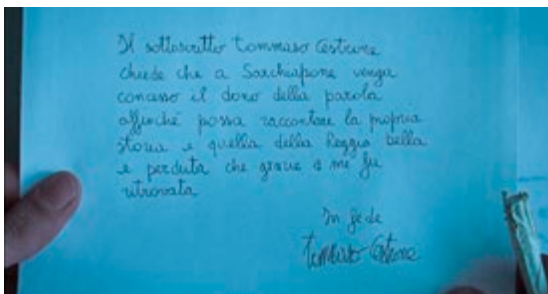 Il sottoscritto Tommaso Cestrone
chiede che a Sarchiapone venga
concesso il dono della parola
affinché possa raccontare la propria
storia e quella della Reggia bella
e perduta che grazie a me fu
ritrovata
In fede
Tommaso Cestrone